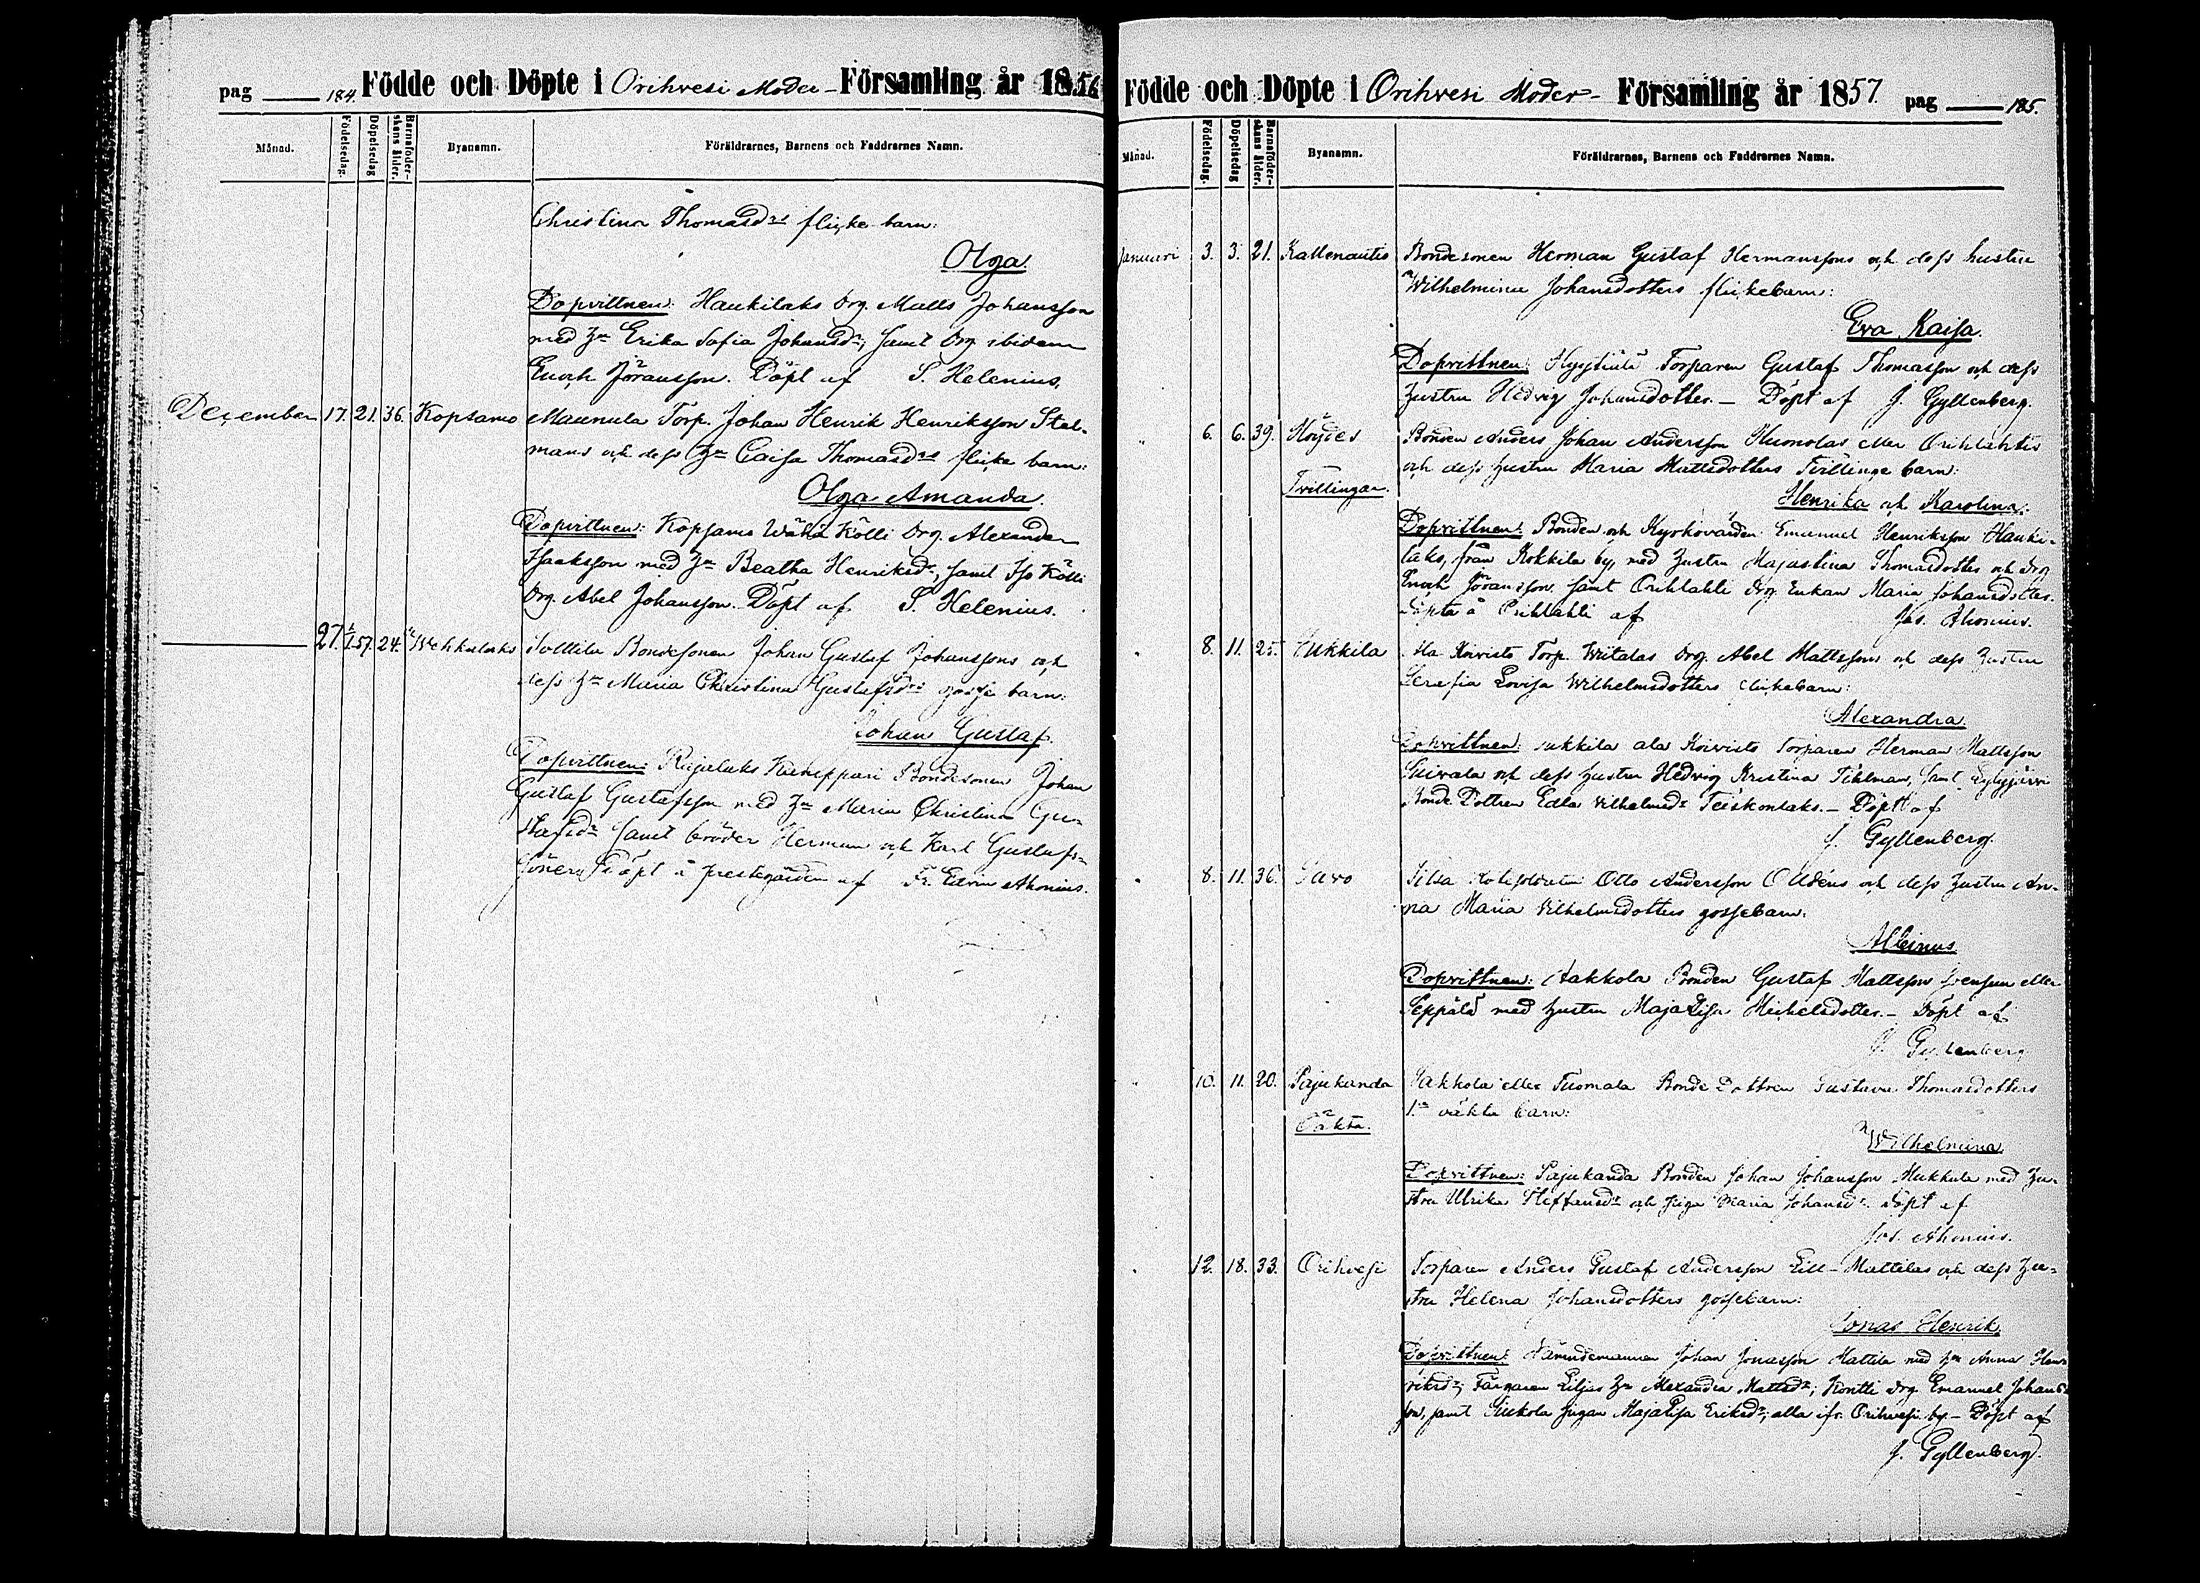 pag 184. Födde och Döpte i Orihvesi Moder- Församling år 1856
Månad. Födelsedag. Döpelsedag Barnaföderskans ålder. Bynamn. Föräldrarnes, Barnens och Faddrarnes Namn.
Christina Thomasdrs flicke barn:
Olga.
Dopvittnen: Haukilaks Drg. Matts Johansson
med Hu Erika Sofia Johansdr, samt Drg ibidem
Enoch Jöransson. Döpt af S. Helenius.
December 17. 21. 36. Kopsamo Maunula Torp. Johan Henrik Henriksson Stål-
mans och dess Hu Caisa Thomasdrs flicke barn:
Olga Amanda.
Dopvittnen: Kopsamo Wähä Kölli Drg. Alexander
Isacksson med Hu Beatha Henriksdr, samt Iso Kölli
Drg. Abel Johansson. Döpt af S. Helenius.
27. 1/1 57. 24. Wehkalaks Sollila Bondesonen Johan Gustaf Johanssons och
dess Hu Maria Christina Gustafsdrs gosse barn:
Johan Gustaf.
Dopvittnen: Rajalaks Bondesonen Johan
Gustaf Gustafsson med Hu Maria Christina Gu-
stafsdr samt bröder Herman och Karl Gustafs-
söner. Döpt i prestegården af Fr. Edvin Ahonius.
Födde och Döpte i Orihvesi Moder- Församling år 1857. pag 185.
Månad. Födelsedag. Döpelsedag Barnaföderskans ålder. Bynamn. Föräldrarnes, Barnens och Faddrarnes Namn.
Januari 3. 3. 21. Kallenautio Bondesonen Herman Gustaf Hermanssons och dess hustru
Wilhelmina Johansdotters flickebarn:
Eva Kaisa.
Dopvittnen: Torparen Gustaf Thomasson och dess
hustru Hedvig Johansdotter. – Döpt af J. Gyllenberg.
6. 6. 39. Bonden Anders Johan Andersson eller Orihlahtis
och dess hustru Maria Mattsdotters Tvillinge barn:
Tvillingar.
Henrika och Karolina:
Dopvittnen: Bonden och Kyrkovärden Emanuel Henriksson Hauki-
laks, från Kokkila by, med hustru Majastina Thomasdotter och Drg
Enoch Jöransson, samt Orihlahti Drg Enkan Maria Johansdotter.
Döpta å Orihlahti af Jos. Ahonius.
8. 11. 25. Sukkila Ala Koivisto Torp. Drg. Abel Mattssons och dess hustru
Serafia Lovisa Wilhelmsdotters flickebarn:
Alexandra.
Dopvittnen: Sukkila ala Koivisto Torparen Herman Mattsson
och dess hustru Hedvig Kristina Tihlman, samt
Bonde Dottren Edla Vilhelmsdr Teiskonlaks. – Döpt af
J. Gyllenberg.
8. 11. 36. Otto Andersson och dess hustru An-
na Maria Vilhelmsdotters gossebarn:
Albinus
Dopvittnen: Bonden Gustaf Mattsson eller
Seppälä med hustru MajaLisa Michelsdotter. – Döpt af
J. Gyllenberg
10. 11. 20. Pajukanda Jakkola eller Tuomala Bonde Dottren Gustava Thomasdotters
1sta oäkta barn:
Oäkta.
Wilhelmina.
Dopvittnen: Pajukanda Bonden Johan Johansson Mukkula med hu-
stru Ulrika Steffansdr och Piga Maria Johansdr. Döpt af
Jos. Ahonius.
12. 18. 33. Orihvesi Torparen Anders Gustaf Andersson Mattilas och dess hu-
stru Helena Johansdotters gossebarn:
Jonas Henrik.
Dopvittnen: Nämndemannen Johan Jonasson Mattila med hu Anna Hen-
riksdr, Färgaren Liljas hu Alexandra Mattsdr; Kontti drg. Emanuel Johans-
son, samt pigan MajaLisa Eriksdr; alla ifr. Orihvesi by – Döpt af
J. Gyllenberg.